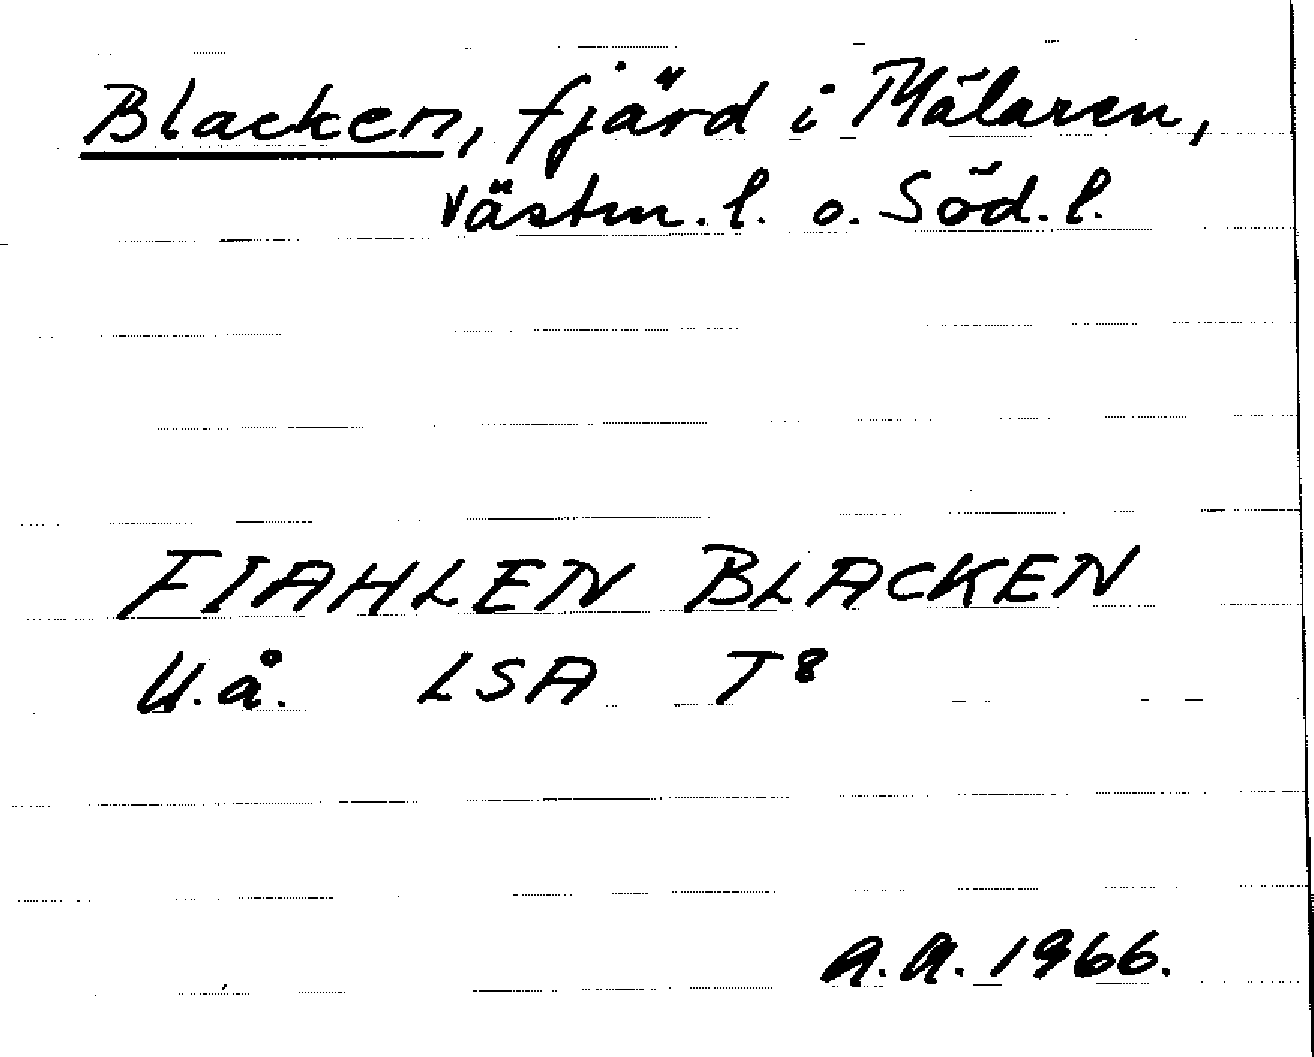 Blacken, fjärd i Mälaren,
Västm. l. o. Söd. l.
FIAHLEN BLACKEN
U.å. LSA T 8
A.A. 1966.